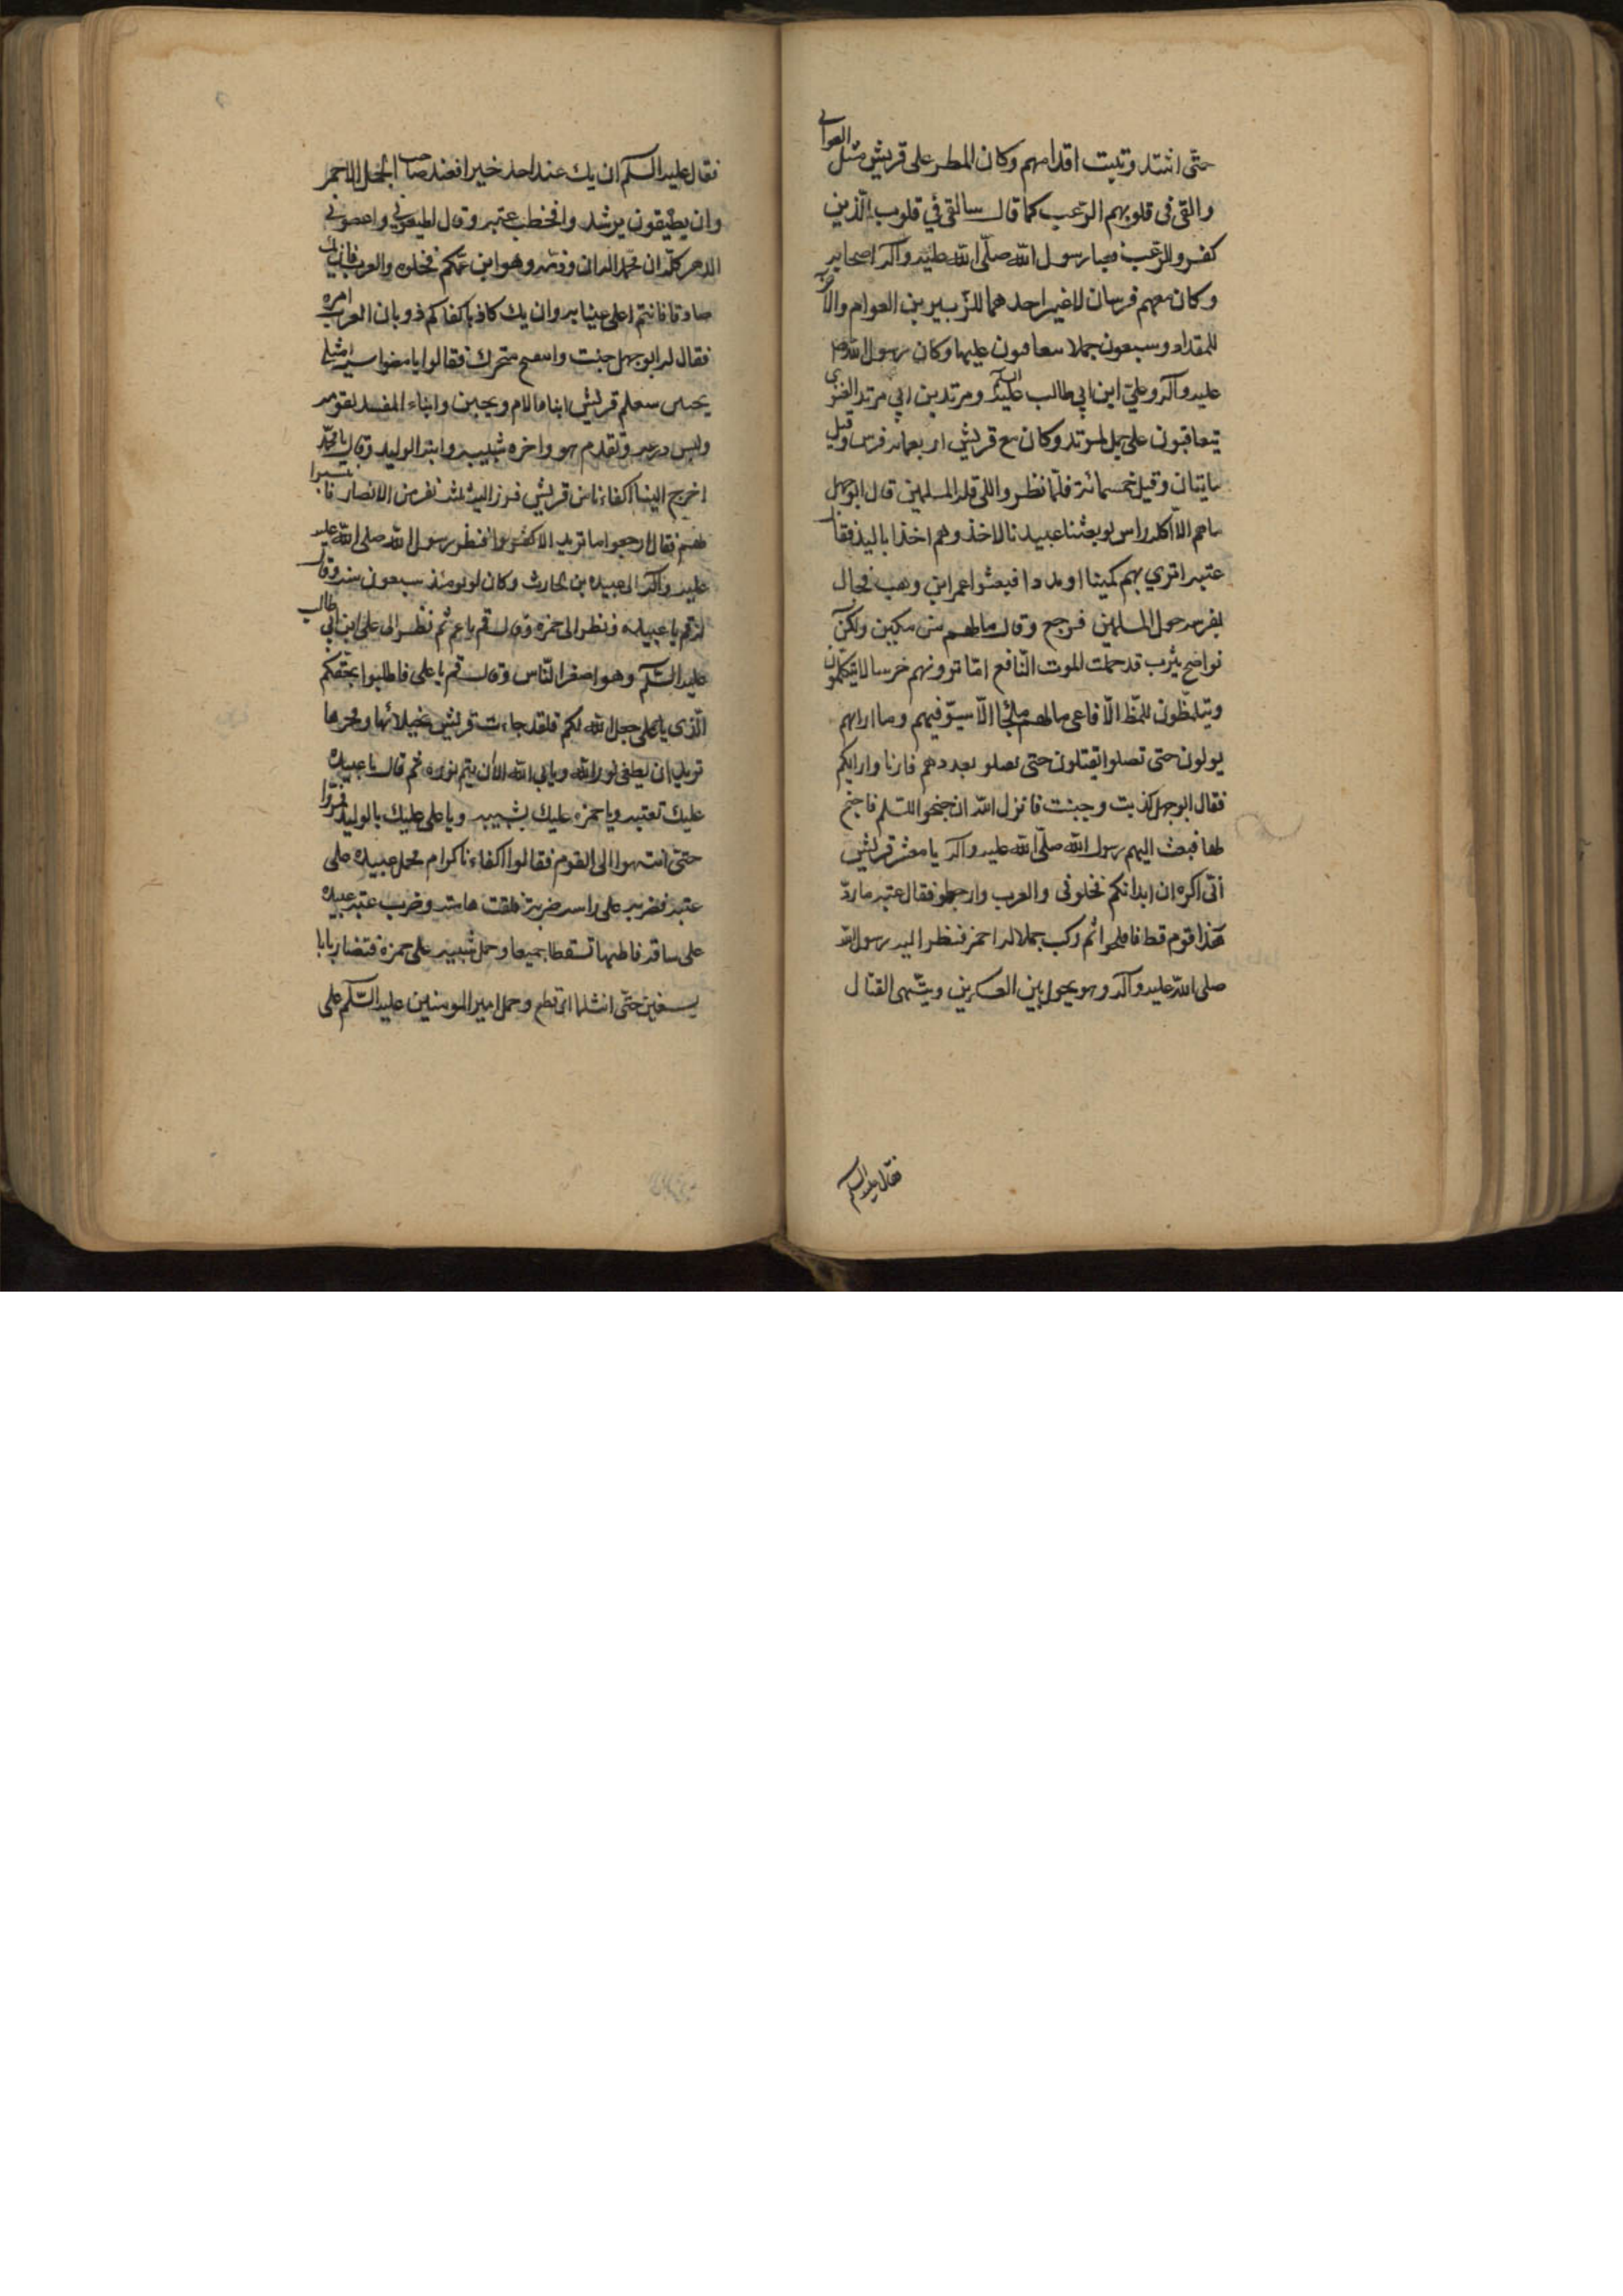 حتّى اشتد وتثبت اقدامهم وكان المطر على قريش مثل العوالي
والقى فى قلوبهم الرّعب كما قال سالقى في قلوب الّذين
كفرو الرّعب فصار رسول الله صلّى الله عليه وآله اصحابه
وكان معهم فرسان لاغير احدهما للزّبير بن العوام والآخر
للمقداد وسبعون جملا يتعاقبون عليها وكان رسول الله ص
عليه وآله وعلي ابن ابي طالب عليه السلم ومرثد بن ابي مرثد الغنوي
يتعاقبون على جمل لمرثد وكان مع قريش اربعمائه فرس وقيل
مايتان وقيل خمسمائة فلمّا نظروا الى قله المسلمين قال ابو جهل
ماهم الّا اكله راس لو بعثنا عبيدنا لاخذوهم اخذا باليد فقال
عتبه اترى بهم كمينا او مددا فبعثوا عمر ابن وهب فجال
بفرسه حول المسلمين فرجع وقال مالهم من كمين ولكن
نواضح يثرب قد حملت الموت النّافع امّا ترونهم خرسا لا يتكلّمون
ويتلمّظون تلمّظ الّافاعى مالهم ملجأ الّا سيوفهم وما اراهم
يولون حتى تصلوا يقتلون حتى يصلو بعددهم فارنا وارايكم
فقال ابو جهل كذبت وجبنت فانزل الله ان جنحوا للسّلم فاجنح
لها فبعث اليهم رسول الله صلّى الله عليه وآله يا معشر قريش
انّى اكره ان ابدانكم نخلونى والعرب وارجعوا فقال عتبه ما ردّ
هذا قوم قط فافلحوا ثم ركب جملا له احمر فنظر اليه رسول الله
صلى الله عليه وآله وهو يجول بين العسكرين وينهى القتال
فقال عليه السلم
فقال عليه السلم ان يك عند احد خير افعند صاحب الجمل الاحمر
وان يطيعون يرشد وا فخطب عتبه وقال اطيعوني واعصوني
الدهر كلّه ان محمّد اله ال وذمّه وهو ابن عمّكم فخلوه والعرب فان يك
صادقا فانتم اعلى عينا به وان يك كاذبا كفاكم ذوبان العرب امره
فقال له ابو جهل جبنت وانتفخ سحرك فقال يا مصفر استه امثلي
يجبن ستعلم قريش اينا الام ويجبن واينا المفسد لقومه
ولبس درعه وتقدم هو واخوه شيبه وابنه الوليد وقال يا محمّد
اخرج الينا اكفاءنا من قريش فبرز اليه ثلثه نفر من الانصار فانتسبوا
لهم فقال ارجعوا ما نريد الاكفو وا فنظر رسول الله صلى الله عليه
عليه وآله الى عبيده بن الحارث وكان له يومئذ سبعون سنه وقال
له قم يا عبيده ونظر الى حمزه وقال قم يا عم ثم نظر الى علي ابن ابي طالب
عليه السّلم وهو اصغر النّاس وقال قم يا على فاطلبوا بحقّكم
الّذى يا على جعل الله لكم فلقد جاءت قريش بخيلائها وفخرها
تريد ان يطفى نور الله ويابى الله الّا ان يتم نوره ثم قال يا عبيده
عليك بعتبه ويا حمزه عليك بشيبه ويا على عليك بالوليد فمرّوا
حتى انتهوا الى القوم فقالوا اكفاءنا كرام فحمل عبيده على
عتبه فضربه على راسه ضربة فلقت هامته وضرب عتبه عبيده
على ساقه فاطنها فسقطا جميعا وحمل شيبه على حمزة فتضاربا با
لسيفين حتّى انثلما اى قطع وحمل امير المومنين عليه السّلم على